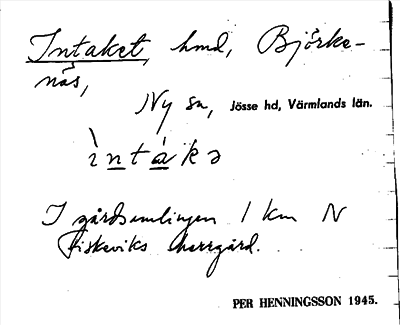 Intaket, hmd, Björke-
näs,
Ny sn, Jösse hd, Värmlands län.
ìntákə
I gårdsamlingen 1 km N
Fiskeviks herrgård.
PER HENNINGSSON 1945.